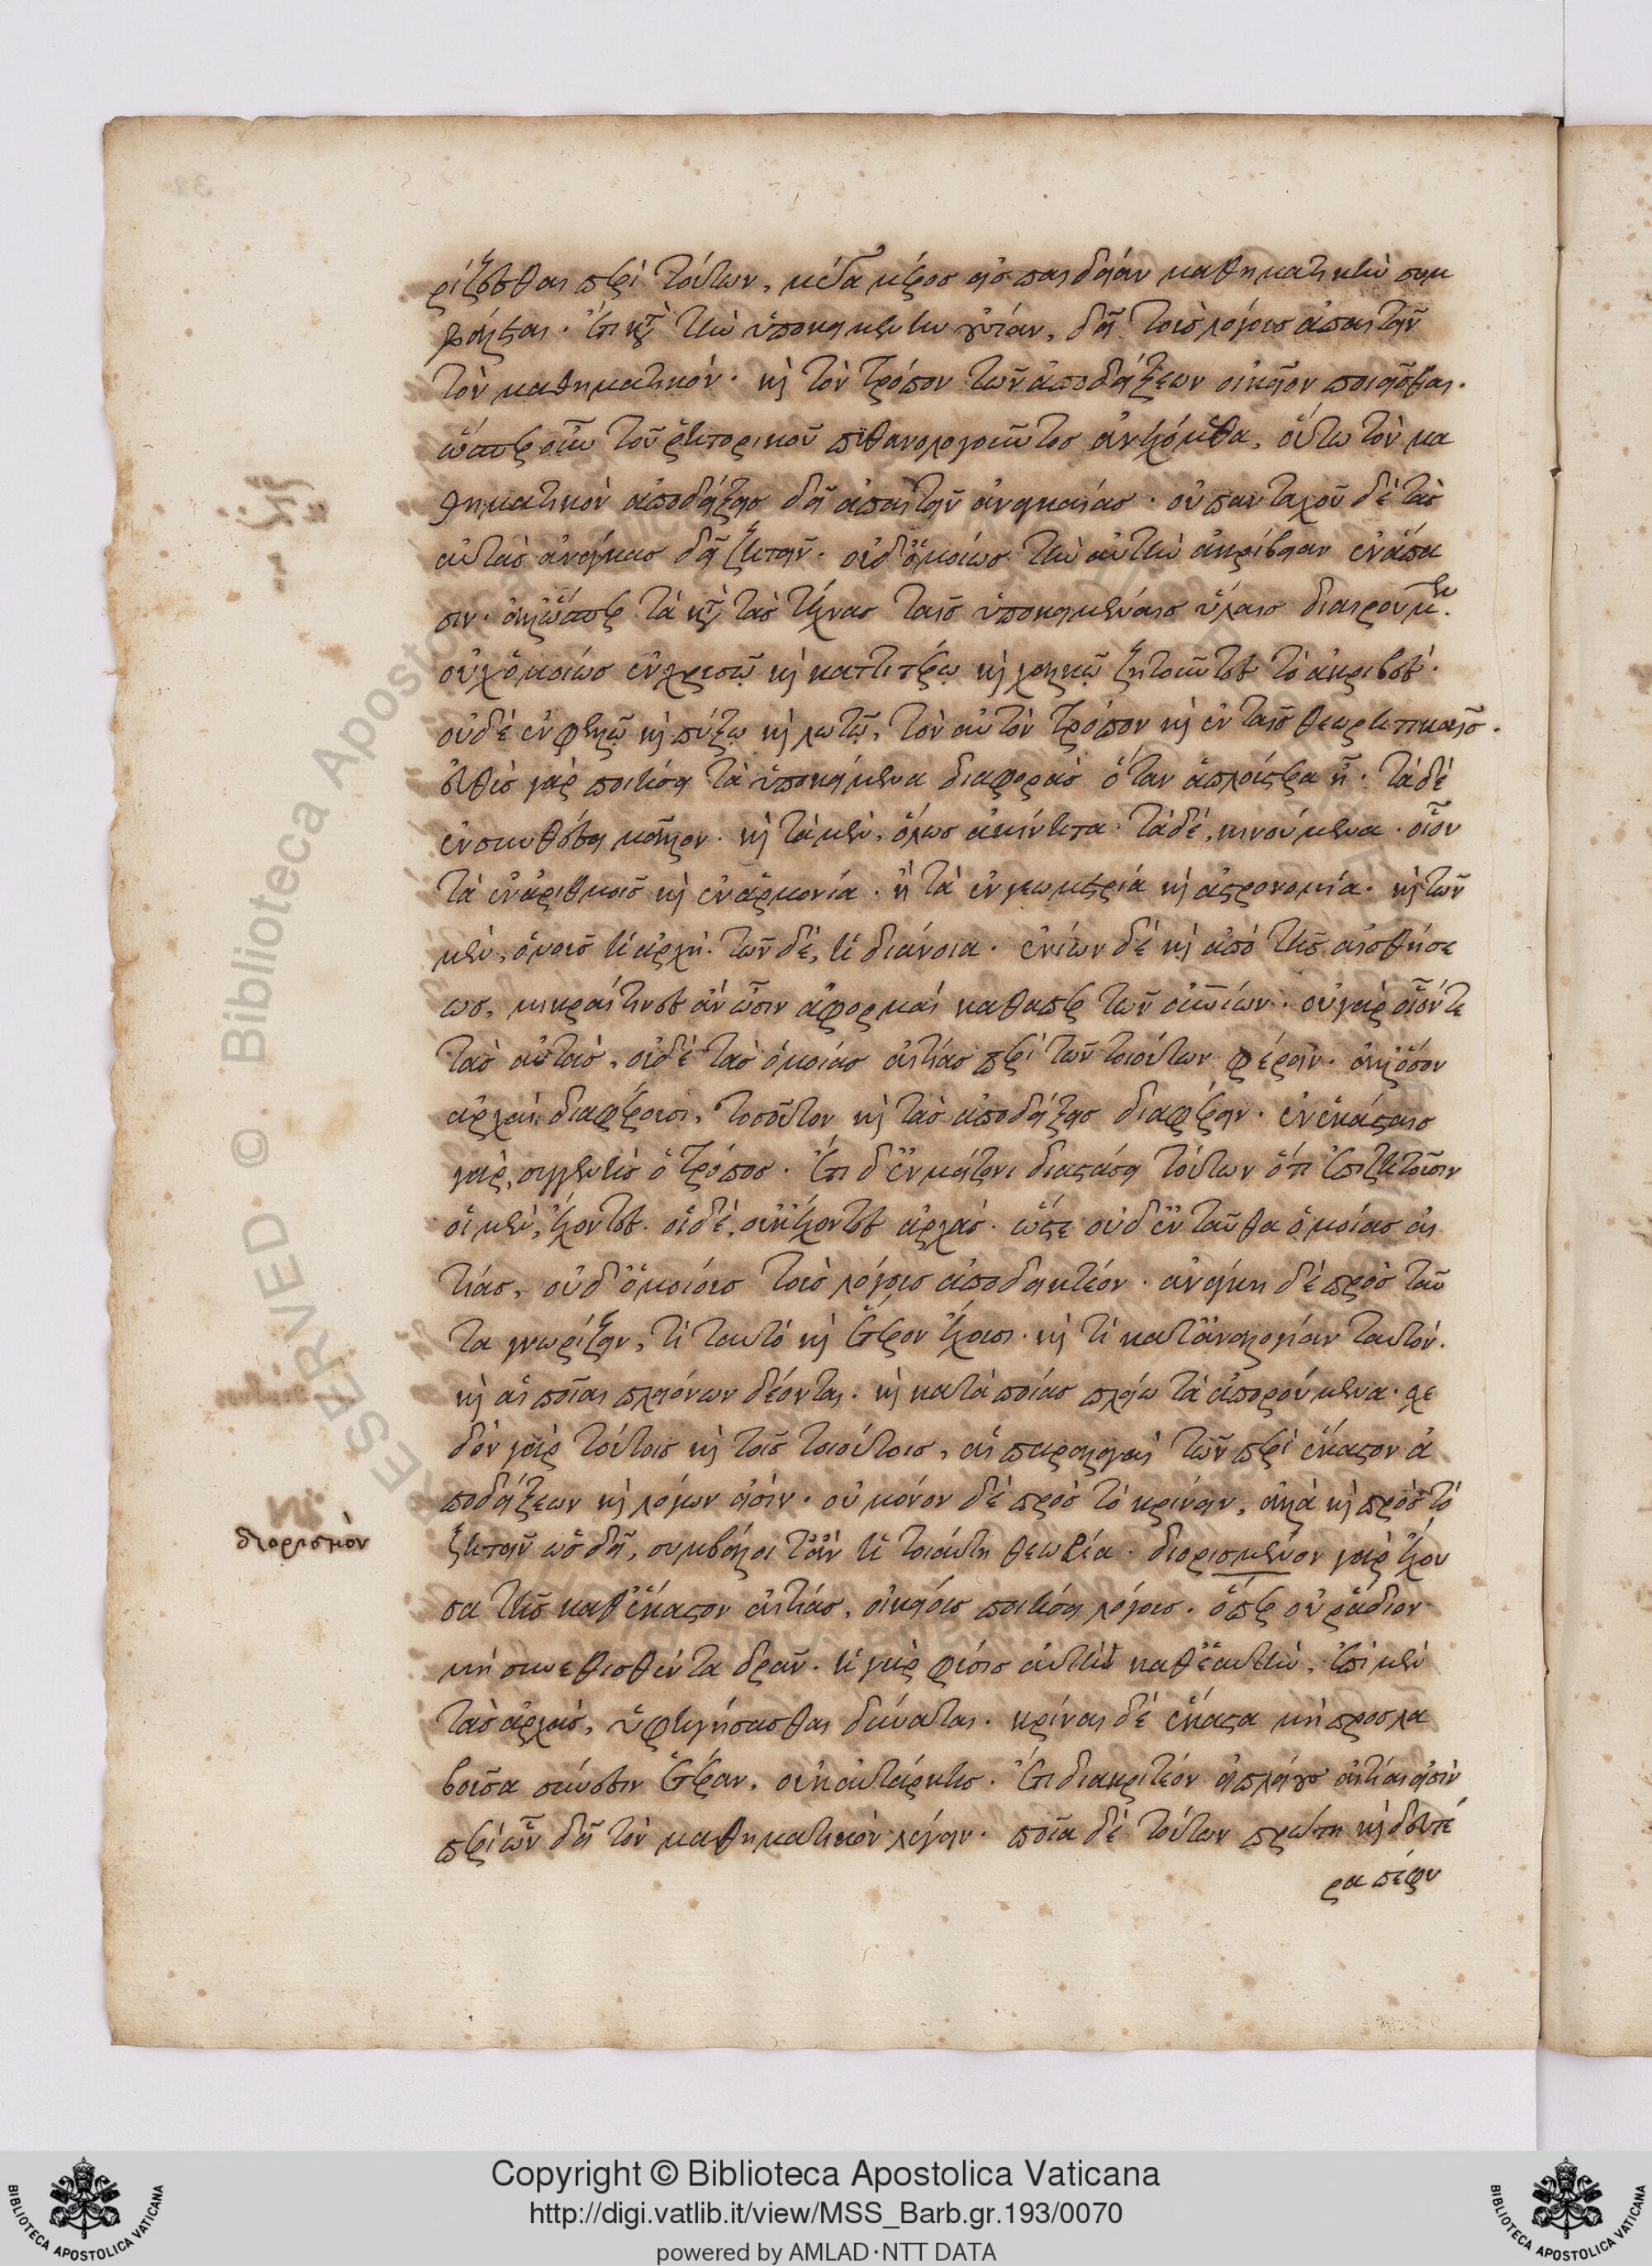 ρίζεσθαι περὶ τούτων, μέγα μέρος εἰς παιδείαν μαθηματικὴν συμ
βάλλεται. ἔτι κατὰ τὴν ὑποκειμένην αἰτίαν, δεῖ τοὺς λόγους ἀπαιτεῖν
τὸν μαθηματικόν. καὶ τὸν τρόπον τῶν ἀποδείξεων οἰκεῖον ποιεῖσθαι.
ὥσπερ οὖν τοῦ ῥητορικοῦ πιθανολογοῦντος ἀνεχόμεθα, οὕτω τὸν μα
θηματικὸν ἀποδείξεις δεῖ ἀπαιτεῖν ἀναγκαίας. οὐ πανταχοῦ δὲ τὰς
αὐτὰς ἀνάγκας δεῖ ζητεῖν. οὐδ' ὁμοίως τὴν αὐτὴν ἀκρίβειαν ἐν ἅπα
σιν. ἀλλ' ὥσπερ τὰ κατὰ τὰς τέχνας ταῖς ὑποκειμέναις ὕλαις διαιρούμεν
οὐχ ὁμοίως ἐν χρυσῷ καὶ καττιτέρῳ καὶ χαλκῷ ζητοῦντες τὸ ἀκριβές.
οὐδὲ ἐν φελλῷ καὶ πύξῳ καὶ λωτῷ, τὸν αὐτὸν τρόπον καὶ ἐν ταῖς θεωρητικαῖς.
εὐθὺς γὰρ ποιήσει τὰ ὑποκείμενα διαφορὰς ὅταν ἁπλούστερα ᾖ. τὰ δὲ
ἐν συνθέσει μᾶλλον. καὶ τὰ μὲν, ὅλως ἀκίνητα. τὰ δὲ, κινούμενα. οἷον
τὰ ἐν ἀριθμοῖς καὶ ἐν ἁρμονία. ἢ τὰ ἐν γεωμετρία καὶ ἀστρονομία. καὶ τῶν
μὲν, ὁ νοῦς ἡ ἀρχή. τῶν δὲ, ἡ διάνοια. ἐνίων δὲ καὶ ἀπὸ τῆς αἰσθήσε
ως, μικραί τινες ἂν ὦσιν ἀφορμαὶ καθάπερ τῶν οὐρανίων. οὐ γὰρ οἷόν τε
τὰς αὐτὰς, οὐδὲ τὰς ὁμοίας αἰτίας περὶ τῶν τοιούτων φέρειν. ἀλλ' ὅσον
ἀρχαὶ διαφέρουσι, τοσοῦτον καὶ τὰς ἀποδείξεις διαφέρειν. ἐν ἑκάσταις
γὰρ, συγγενὴς ὁ τρόπος. ἔτι δ' ἐν μείζονι διαστάσει τούτων ὅτι ἐπιζητοῦσιν
οἱ μὲν, ἔχοντες. οἱ δὲ, οὐκ ἔχοντες ἀρχάς. ὥστε οὐδ' ἐνταῦθα ὁμοίας αἰ
τίας, οὐδ' ὁμοίους τοὺς λόγους ἀποδεικτέον. ἀνάγκη δὲ πρὸς ταῦ
τα γνωρίζειν, τί ταυτὸ καὶ ἕτερον ἔχουσι. καὶ τί κατ' ἀναλογίαν ταυτόν.
καὶ αἱ ποῖαι πλειόνων δέονται. καὶ κατὰ ποίας πλείω τὰ ἀπορούμενα. σχε
δὸν γὰρ τούτοις καὶ τοῖς τοιούτοις, αἱ παραλλαγαὶ τῶν περὶ ἕκαστον ἀ
ποδείξεων καὶ λόγων εἰσίν. οὐ μόνον δὲ πρὸς τὸ κρίνειν, ἀλλὰ καὶ πρὸς τὸ
ζητεῖν ὡς δεῖ, συμβάλλοιτ' ἂν ἡ τοιαύτη θεωρία. διορισμένον γὰρ ἔχου
διορισμὸν
σα τῆς καθ' ἕκαστον αἰτίας, οἰκείους ποιήσει λόγους. ὅπερ οὐ ῥάδιον
μὴ συνεθισθέντα δρᾶν. ἡ γὰρ φύσις αὐτὴ καθ' ἑαυτὴν, ἐπὶ μὲν
τὰς ἀρχὰς, ὑφηγήσασθαι δύναται. κρῖναι δὲ ἕκαστα μὴ προσλα
βοῦσα σύνεσιν ἑτέραν, οὐκ αὐτάρκης. ἔτι διακριτέον εἰ πλείους αἰτίαι εἰσὶν
περὶ ὧν δεῖ τὸν μαθηματικὸν λέγειν. ποία δὲ τούτων πρώτη καὶ δευτέ
ρα πέφυ
Copyright © Biblioteca Apostolica Vaticana
http://digi.vatlib.it/view/MSS_Barb.gr.193/0070
powered by AMLAD·NTT DATA